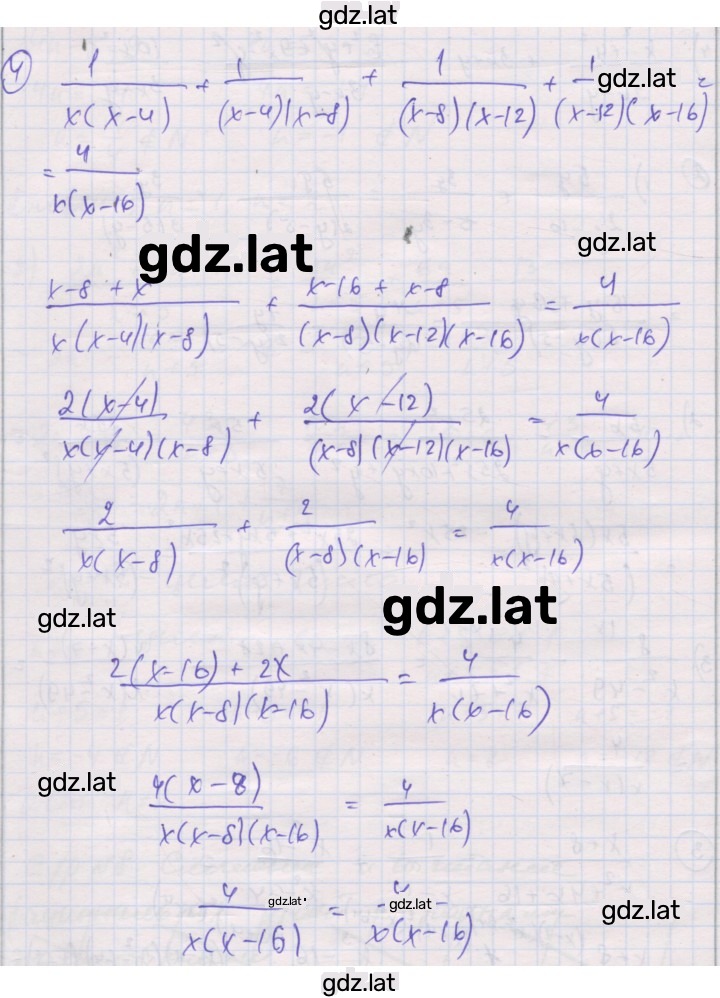 gdz.lat
4) 1/(x(x-4)) + 1/((x-4)(x-8)) + 1/((x-8)(x-12)) + 1/((x-12)(x-16)) =
gdz.lat
= 4/(x(x-16))
gdz.lat gdz.lat
(x-8 + x)/(x(x-4)(x-8)) + (x-16 + x-8)/((x-8)(x-12)(x-16)) = 4/(x(x-16))
2(x-4)/(x(x-4)(x-8)) + 2(x-12)/((x-8)(x-12)(x-16)) = 4/(x(x-16))
2/(x(x-8)) + 2/((x-8)(x-16)) = 4/(x(x-16))
gdz.lat gdz.lat
(2(x-16) + 2x)/(x(x-8)(x-16)) = 4/(x(x-16))
gdz.lat
4(x-8)/(x(x-8)(x-16)) = 4/(x(x-16))
4/(x(x-16)) = 4/(x(x-16))
gdz.lat gdz.lat gdz.lat
gdz.lat